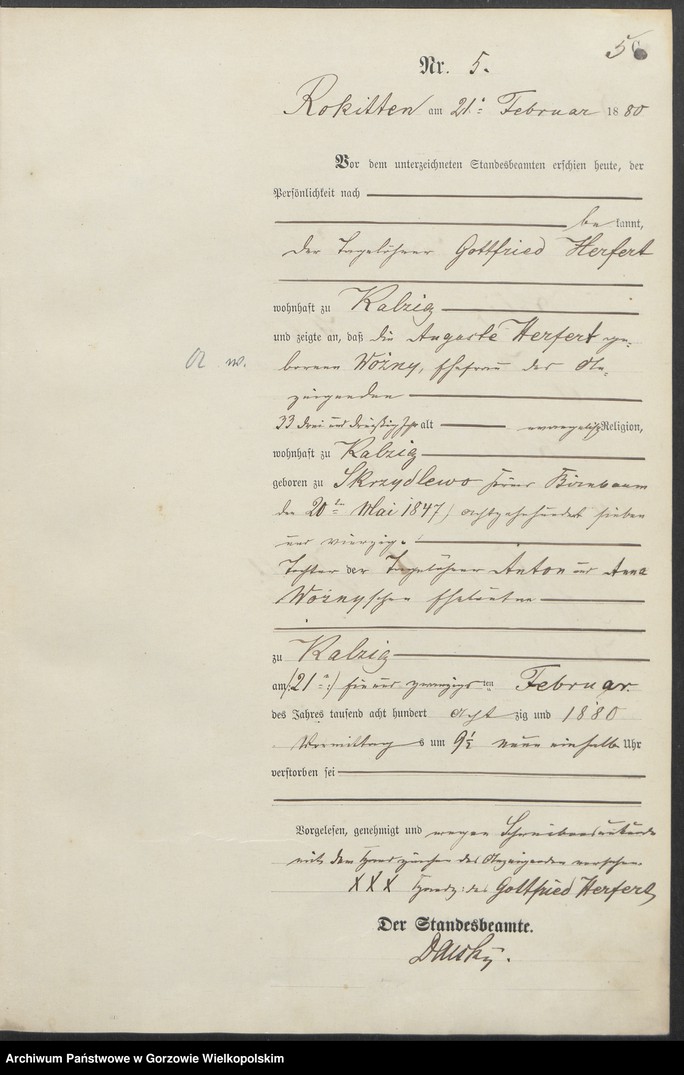 5
Nr. 5.
Rokitten am 21. Februar 1880
Vor dem unterzeichneten Standesbeamten erschien heute, der
Persönlichkeit nach
bekannt,
der Tagelöhner Gottfried Herfert
wohnhaft zu Kalzig
und zeigte an, daß die Auguste Herfert ge-
borenen Wożny, Ehefrau des An-
zeigenden
33 drei und dreißig Jahr alt evangelisch Religion,
wohnhaft zu Kalzig
geboren zu Skrzydlewo Birnbaum
den 20ten Mai 1847) achtzehnhundert sieben
und vierzig.
Tochter der Tagelöhner Anton und Anna
Wożnyschen Eheleuten
zu Kalzig
am (21ten) ein und zwanzigsten Februar
des Jahres tausend acht hundert achtzig und 1880
Vormittags um 9½ neun einhalb Uhr
verstorben sei
Vorgelesen, genehmigt und wegen Schreibensunkunde
mit dem Handzeichen des Anzeigenden versehen.
XXX Handz: des Gottfried Herfert
Der Standesbeamte.
Archiwum Państwowe w Gorzowie Wielkopolskim